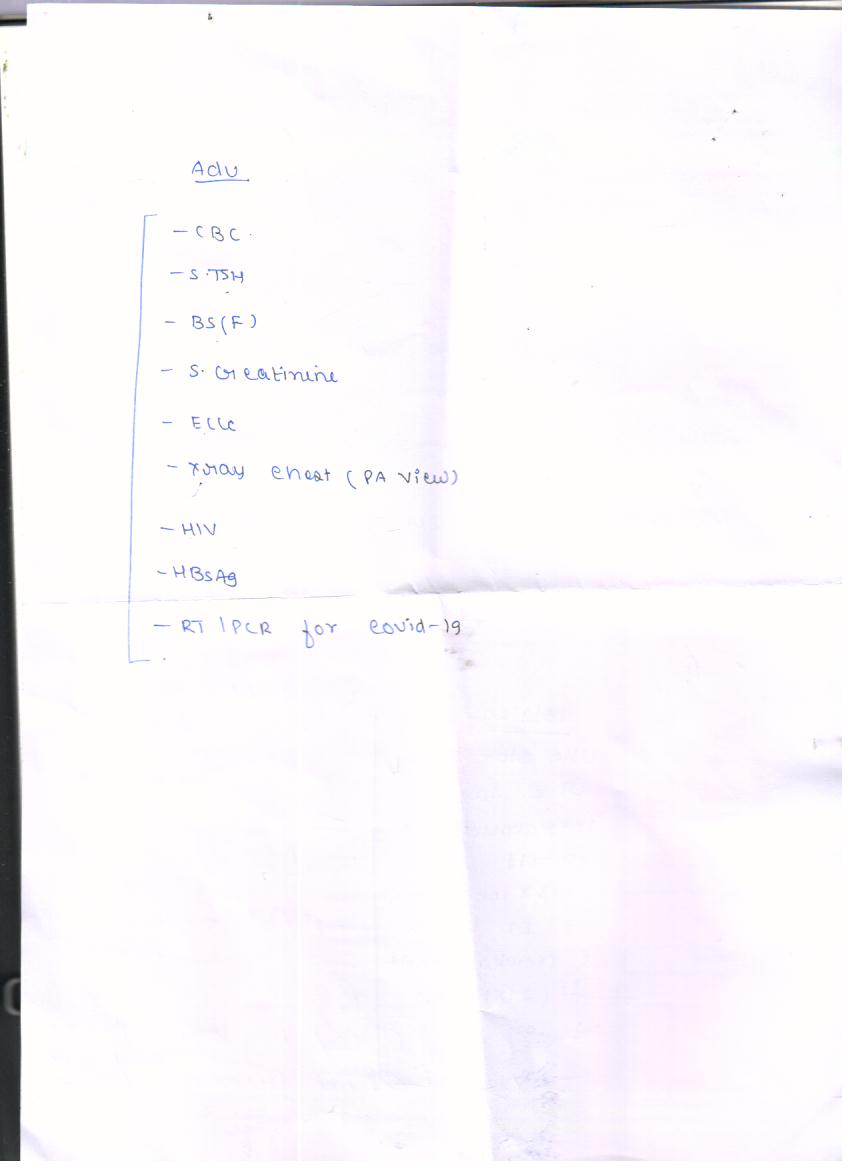 Adv
- CBC.
- S.TSH
- BS(F)
- S. Creatinine
- ECG
- Xray chest (PA View)
- HIV
- HBsAg
- RT/PCR for covid-19